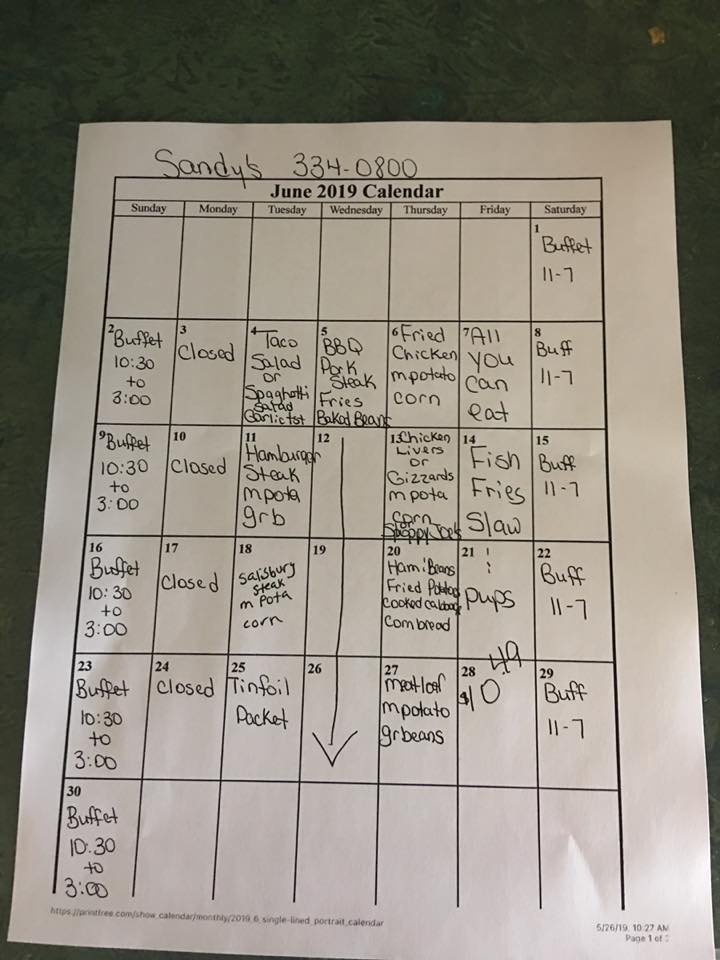 Sandy's 334-0800
June 2019 Calendar
Sunday Monday Tuesday Wednesday Thursday Friday Saturday
1
Buffet
11-7
2 Buffet
10:30
to
3:00
3
Closed
4 Taco
Salad
or
Spaghetti
Salad
Garlictst
5
BBQ
Pork
Steak
Fries
Baked Beans
6 Fried
Chicken
mpotato
corn
7 All
you
can
eat
8
Buff
11-7
9 Buffet
10:30
to
3:00
10
Closed
11
Hamburger
Steak
mpota
grb
12
13 Chicken
Livers
or
Gizzards
mpota
corn
Sloppy Joe's
14
Fish
Fries
Slaw
15
Buff
11-7
16
Buffet
10:30
to
3:00
17
Closed
18
Salisbury
steak
m pota
corn
19
20
Ham:Beans
Fried Potatoes
cooked cabbage
Cornbread
21
pups
22
Buff
11-7
23
Buffet
10:30
to
3:00
24
Closed
25
Tinfoil
Packet
26
27
meatloaf
mpotato
grbeans
28 49
$10
29
Buff
11-7
30
Buffet
10:30
to
3:00
https://printfree.com/show_calendar/monthly/2019_6_single-lined_portrait_calendar
5/26/19, 10:27 AM
Page 1 of